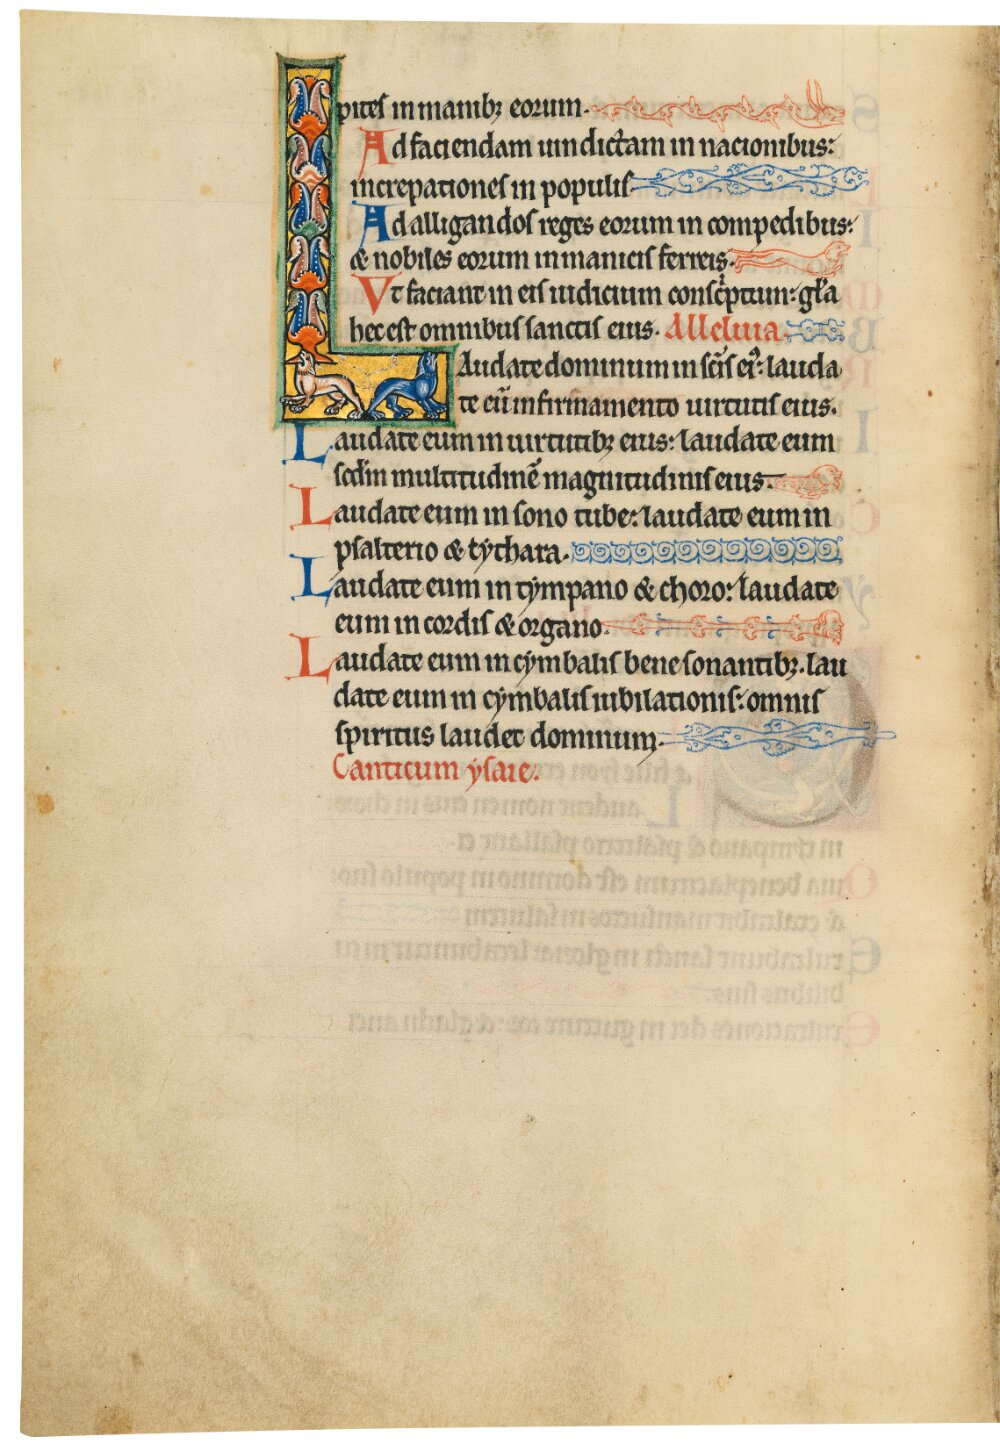 pites in manibꝫ eorum.
Ad faciendam uindictam in nacionibus:
increpationes in populis.
Ad alligandos reges eorum in compedibus:
& nobiles eorum in manicis ferreis.
Vt faciant in eis iudicium conscͥptum: gła
hec est omnibus sanctis eius. Alleluia.
Laudate dominum in scı̄s eıꝰ: lauda
te eū in firmamento uirtutis eius.
Laudate eum in uirtutibꝫ eius: laudate eum
scdm̄ multitudinē magnitudinis eius.
Laudate eum in sono tube: laudate eum in
psalterio & cythara.
Laudate eum in tympano & choro: laudate
eum in cordis & organo.
Laudate eum in cymbalis bene sonantibꝫ. lau
date eum in cymbalis iubilationis: omnis
spiritus laudet dominum.
Canticum ysaie.